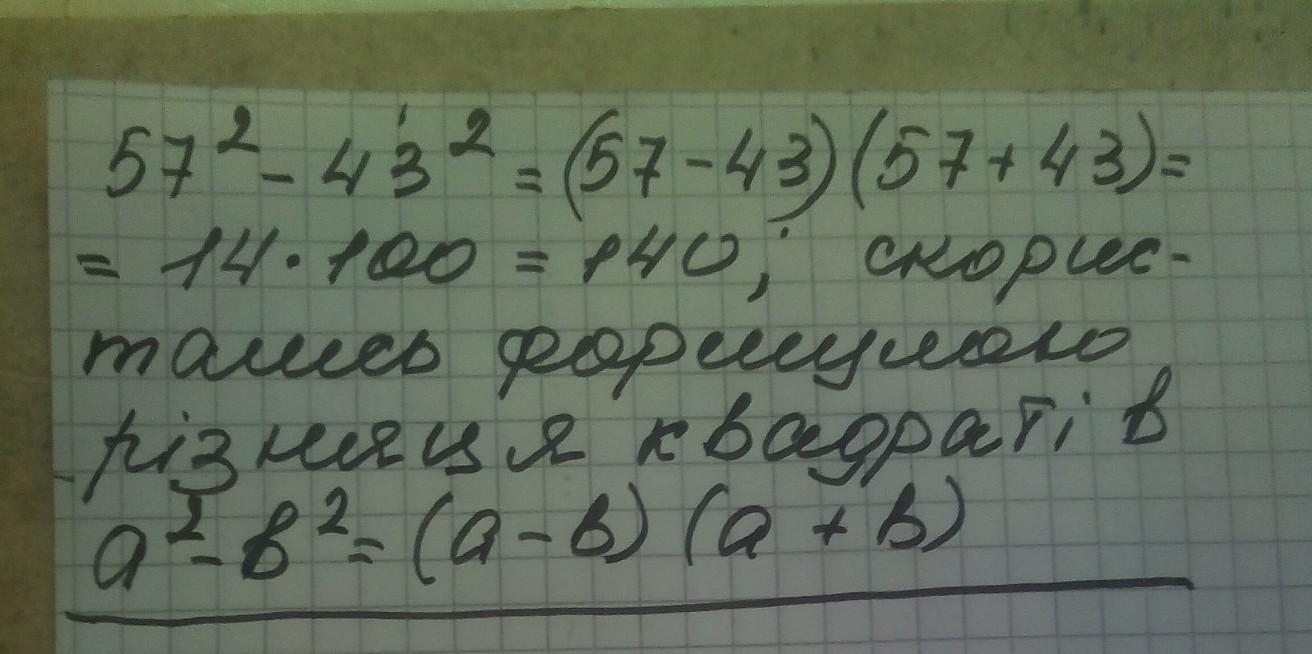 57² - 43² = (57 - 43)(57 + 43) =
= 14 · 100 = 140; скорис-
тались формулою
різниця квадратів
a² - b² = (a - b)(a + b)